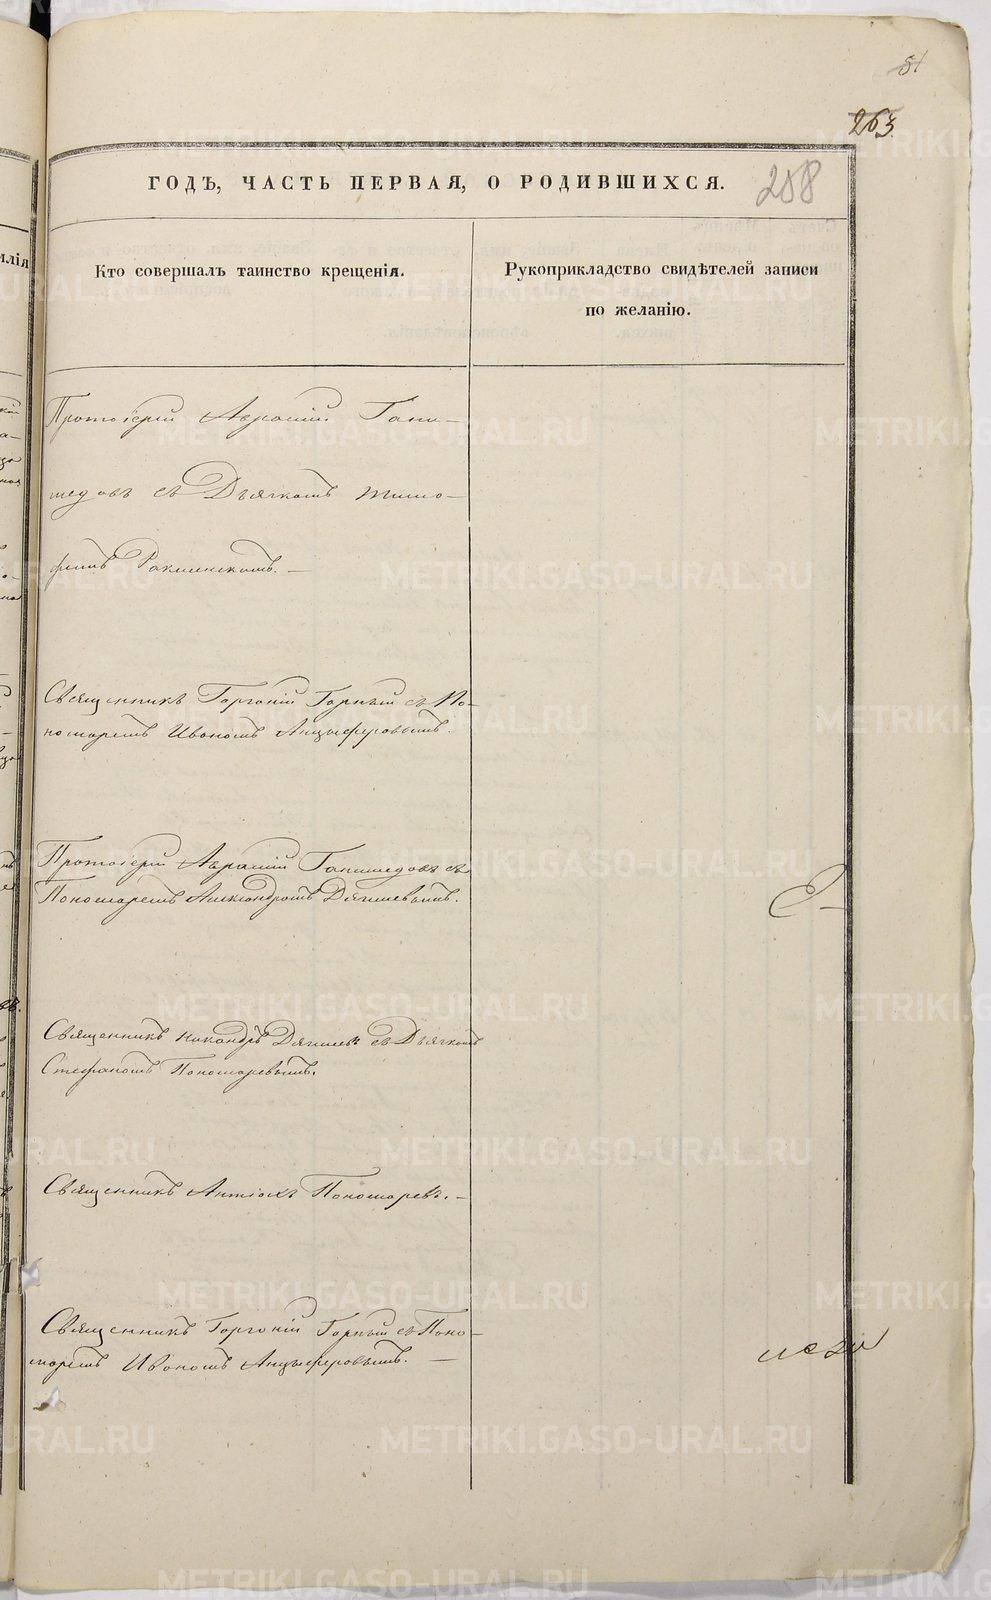 81
263.
208
ГОДЪ, ЧАСТЬ ПЕРВАЯ, О РОДИВШИХСЯ.
Кто совершалъ таинство крещенія.
Рукоприкладство свидѣтелей записи
по желанію.
Протоіерей Авраамій
съ Дьячкомъ Тимо-
феемъ
Священникъ Горгоній Горный съ По-
номаремъ Иваномъ Анцыферовымъ.
Протоіерей Авраамій съ
Пономаремъ Александромъ Дягилевымъ.
Священникъ Никандръ Дягилевъ съ Дьячкомъ
Стефаномъ Пономаревымъ.
Священникъ Антіохъ Пономаревъ. —
Священникъ Горгоній Горный съ Поно-
маремъ Иваномъ Анцыферовымъ. —
METRIKI.GASO-URAL.RU